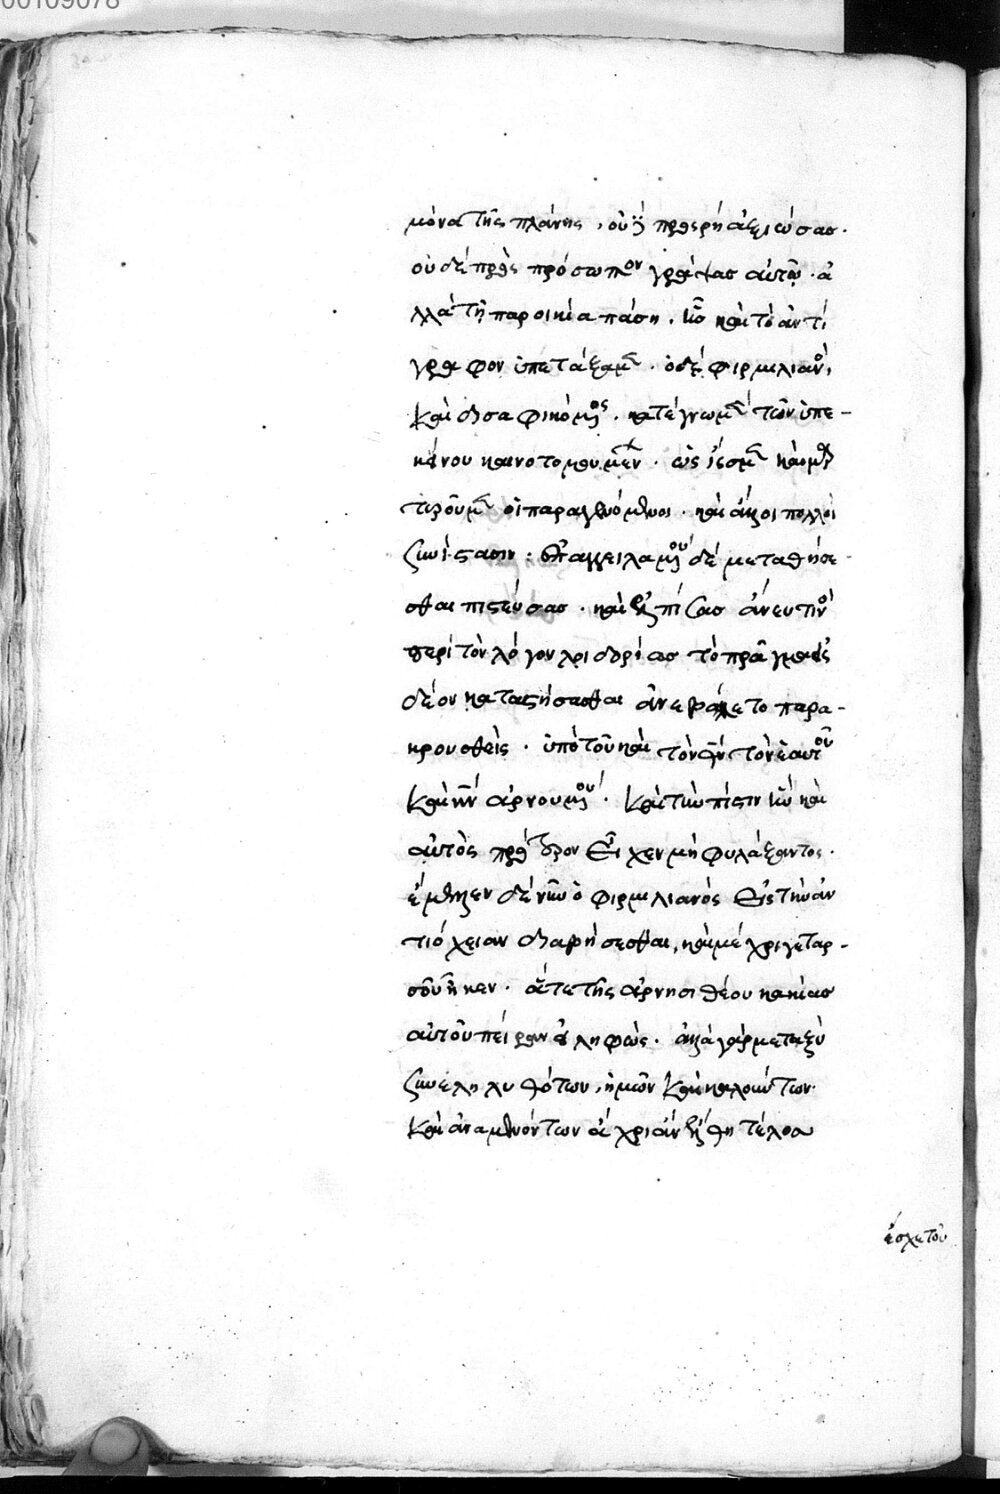 00109078
μόνα τῆς πλάνης, οὐδὲ προσρήσεως ἀξιώσας.
οὐδὲ πρὸς πρόσωπον γράψας αὐτῷ. ἀ
λλὰ τῇ παροικίᾳ πάσῃ. ἧς καὶ τὸ ἀντί
γραφον ὑπετάξαμεν. ὁ δὲ φιρμιλιανὸς,
καὶ δὶς ἀφικόμενος. κατέγνω μὲν τῶν ὑπ' ἐ-
κείνου καινοτομουμένων. ὡς ἴσμεν καὶ μαρ
τυροῦμεν οἱ παραγενόμενοι. καὶ ἄλλοι πολλοὶ
συνίσασιν. ἐπαγγειλαμένου δὲ μεταθήσε
σθαι πιστεύσας. καὶ ἐλπίσας ἄνευ τινὸς
περὶ τὸν λόγον λοιδορίας τὸ πρᾶγμα εἰς
δέον καταστήσασθαι ἀνεβάλλετο παρα-
κρουσθεὶς. ὑπὸ τοῦ καὶ τὸν θν τὸν ἑαυτοῦ
καὶ κν ἀρνουμένου. καὶ τὴν πίστιν ἣν καὶ
αὐτὸς πρότερον εἶχεν μὴ φυλάξαντος.
ἔμελλεν δὲ νῦν ὁ φιρμιλιανὸς εἰς τὴν ἀν
τιόχειαν διαβήσεσθαι, καὶ μέχρι γε ταρ-
σοῦ ἧκεν. ἅτε τῆς ἀρνησιθέου κακίας
αὐτοῦ πεῖραν εἰληφὼς. ἀλλὰ γὰρ μεταξὺ
συνεληλυθότων, ἡμῶν καὶ καλούντων
καὶ ἀναμενόντων ἄχρι ἂν ἔλθῃ τέλος
ἔσχε τοῦ